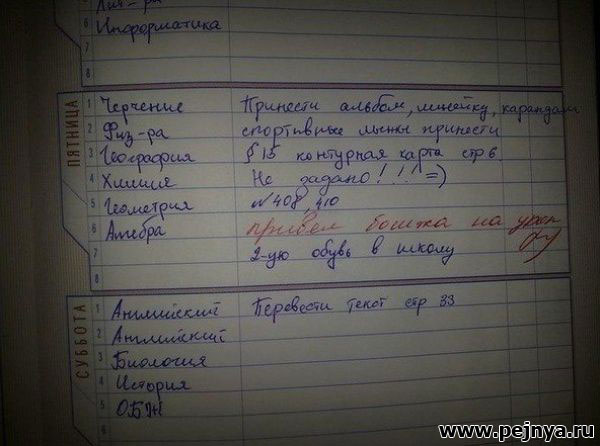 Лит-ра
6 Информатика
7
8
ПЯТНИЦА
1 Черчение Принести альбом, линейку, карандаш
2 Физ-ра спортивные лыжы принести
3 География § 15 контурная карта стр 6
4 Химия Не задано! ! ! ! =)
5 Геометрия №408, 410
6 Алгебра привел бомжа на урок
7 2-ую обувь в школу
8
СУББОТА
1 Английский Перевести текст стр 33
2 Английский
3 Биология
4 История
5 ОБЖ
6
www.pejnya.ru